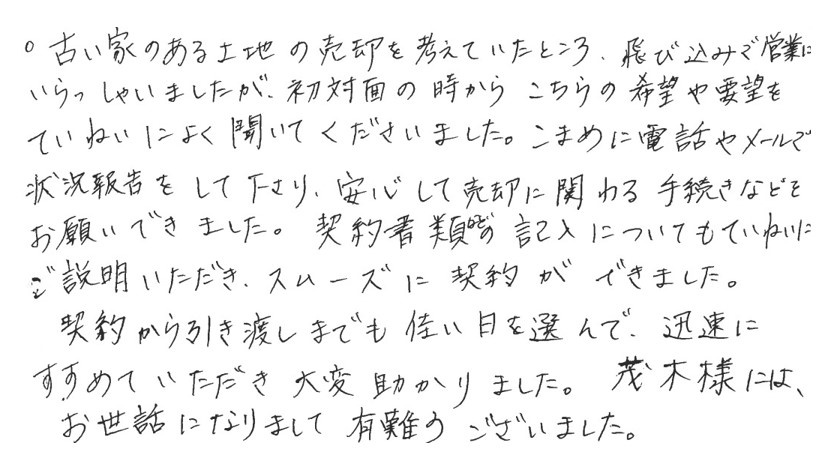 ○ 古い家のある土地の売却を考えていたところ、飛び込みで営業に
いらっしゃいましたが、初対面の時からこちらの希望や要望を
ていねいによく聞いてくださいました。こまめに電話やメールで
状況報告をして下さり、安心して売却に関わる手続きなどを
お願いできました。契約書類等の記入についてもていねいに
ご説明いただき、スムーズに契約ができました。
契約から引き渡しまでも佳い日を選んで、迅速に
すすめていただき大変助かりました。茂木様には、
お世話になりまして有難うございました。